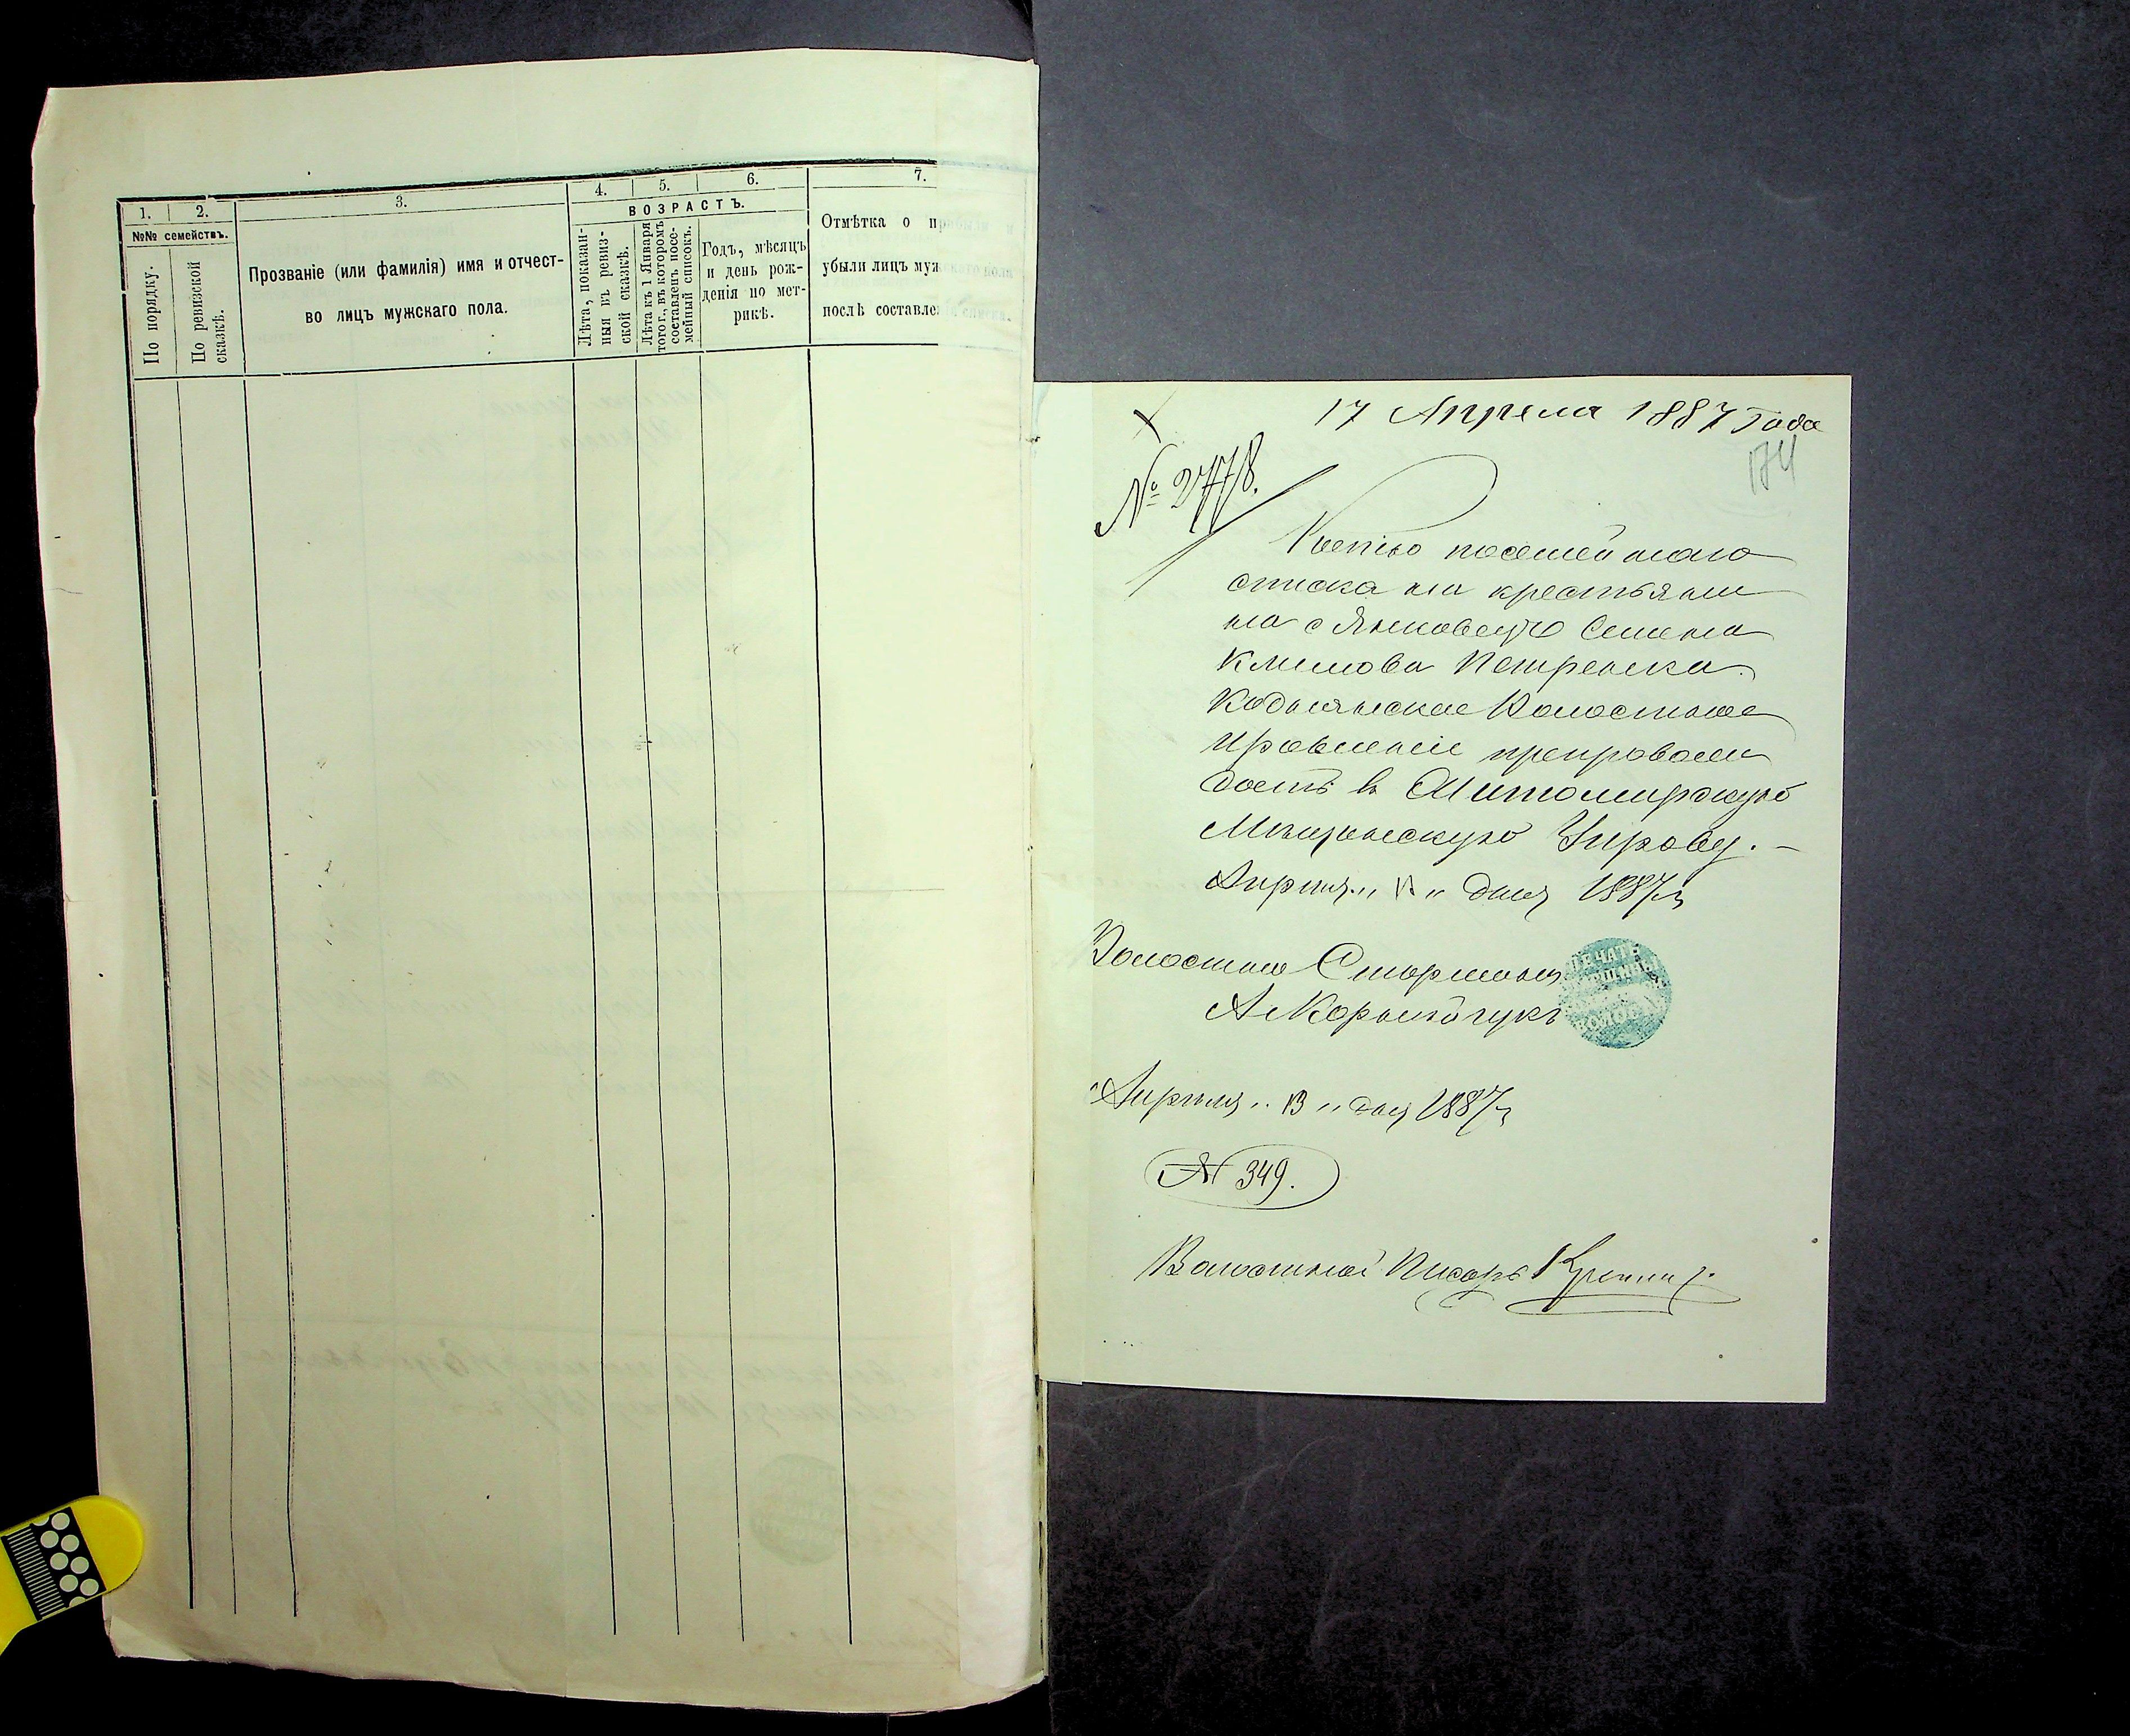 1. 2. 3. 4. 5. 6. 7.
№№ семействъ.
По порядку.
По ревизской сказкѣ.
Прозваніе (или фамилія) имя и отчест-
во лицъ мужскаго пола.
ВОЗРАСТЪ.
Лѣта, показан-
ныя въ ревиз-
ской сказкѣ.
Лѣта къ 1 Января
того г., въ которомъ
составленъ посе-
мейный списокъ.
Годъ, мѣсяцъ
и день рож-
денія по мет-
рикѣ.
Отмѣтка о прибыли и
убыли лицъ мужскаго пола
послѣ составленія списка.
17 Апреля 1887 Года
174
№ 2778.
Копію посемейнаго
списка на крестьяни
на с Янковец Семена
Климова Петренка
Кодненское Волостное
Правленіе препровож
даетъ в Житомирскую
Мещанскую Управу. –
Апреля „ „ дня 1887 г
Волостной Старшина
А Корнейчукъ
ПЕЧАТЬ
Апреля „ 13 „ дня 1887 г
№ 349.
Волостной Писарь